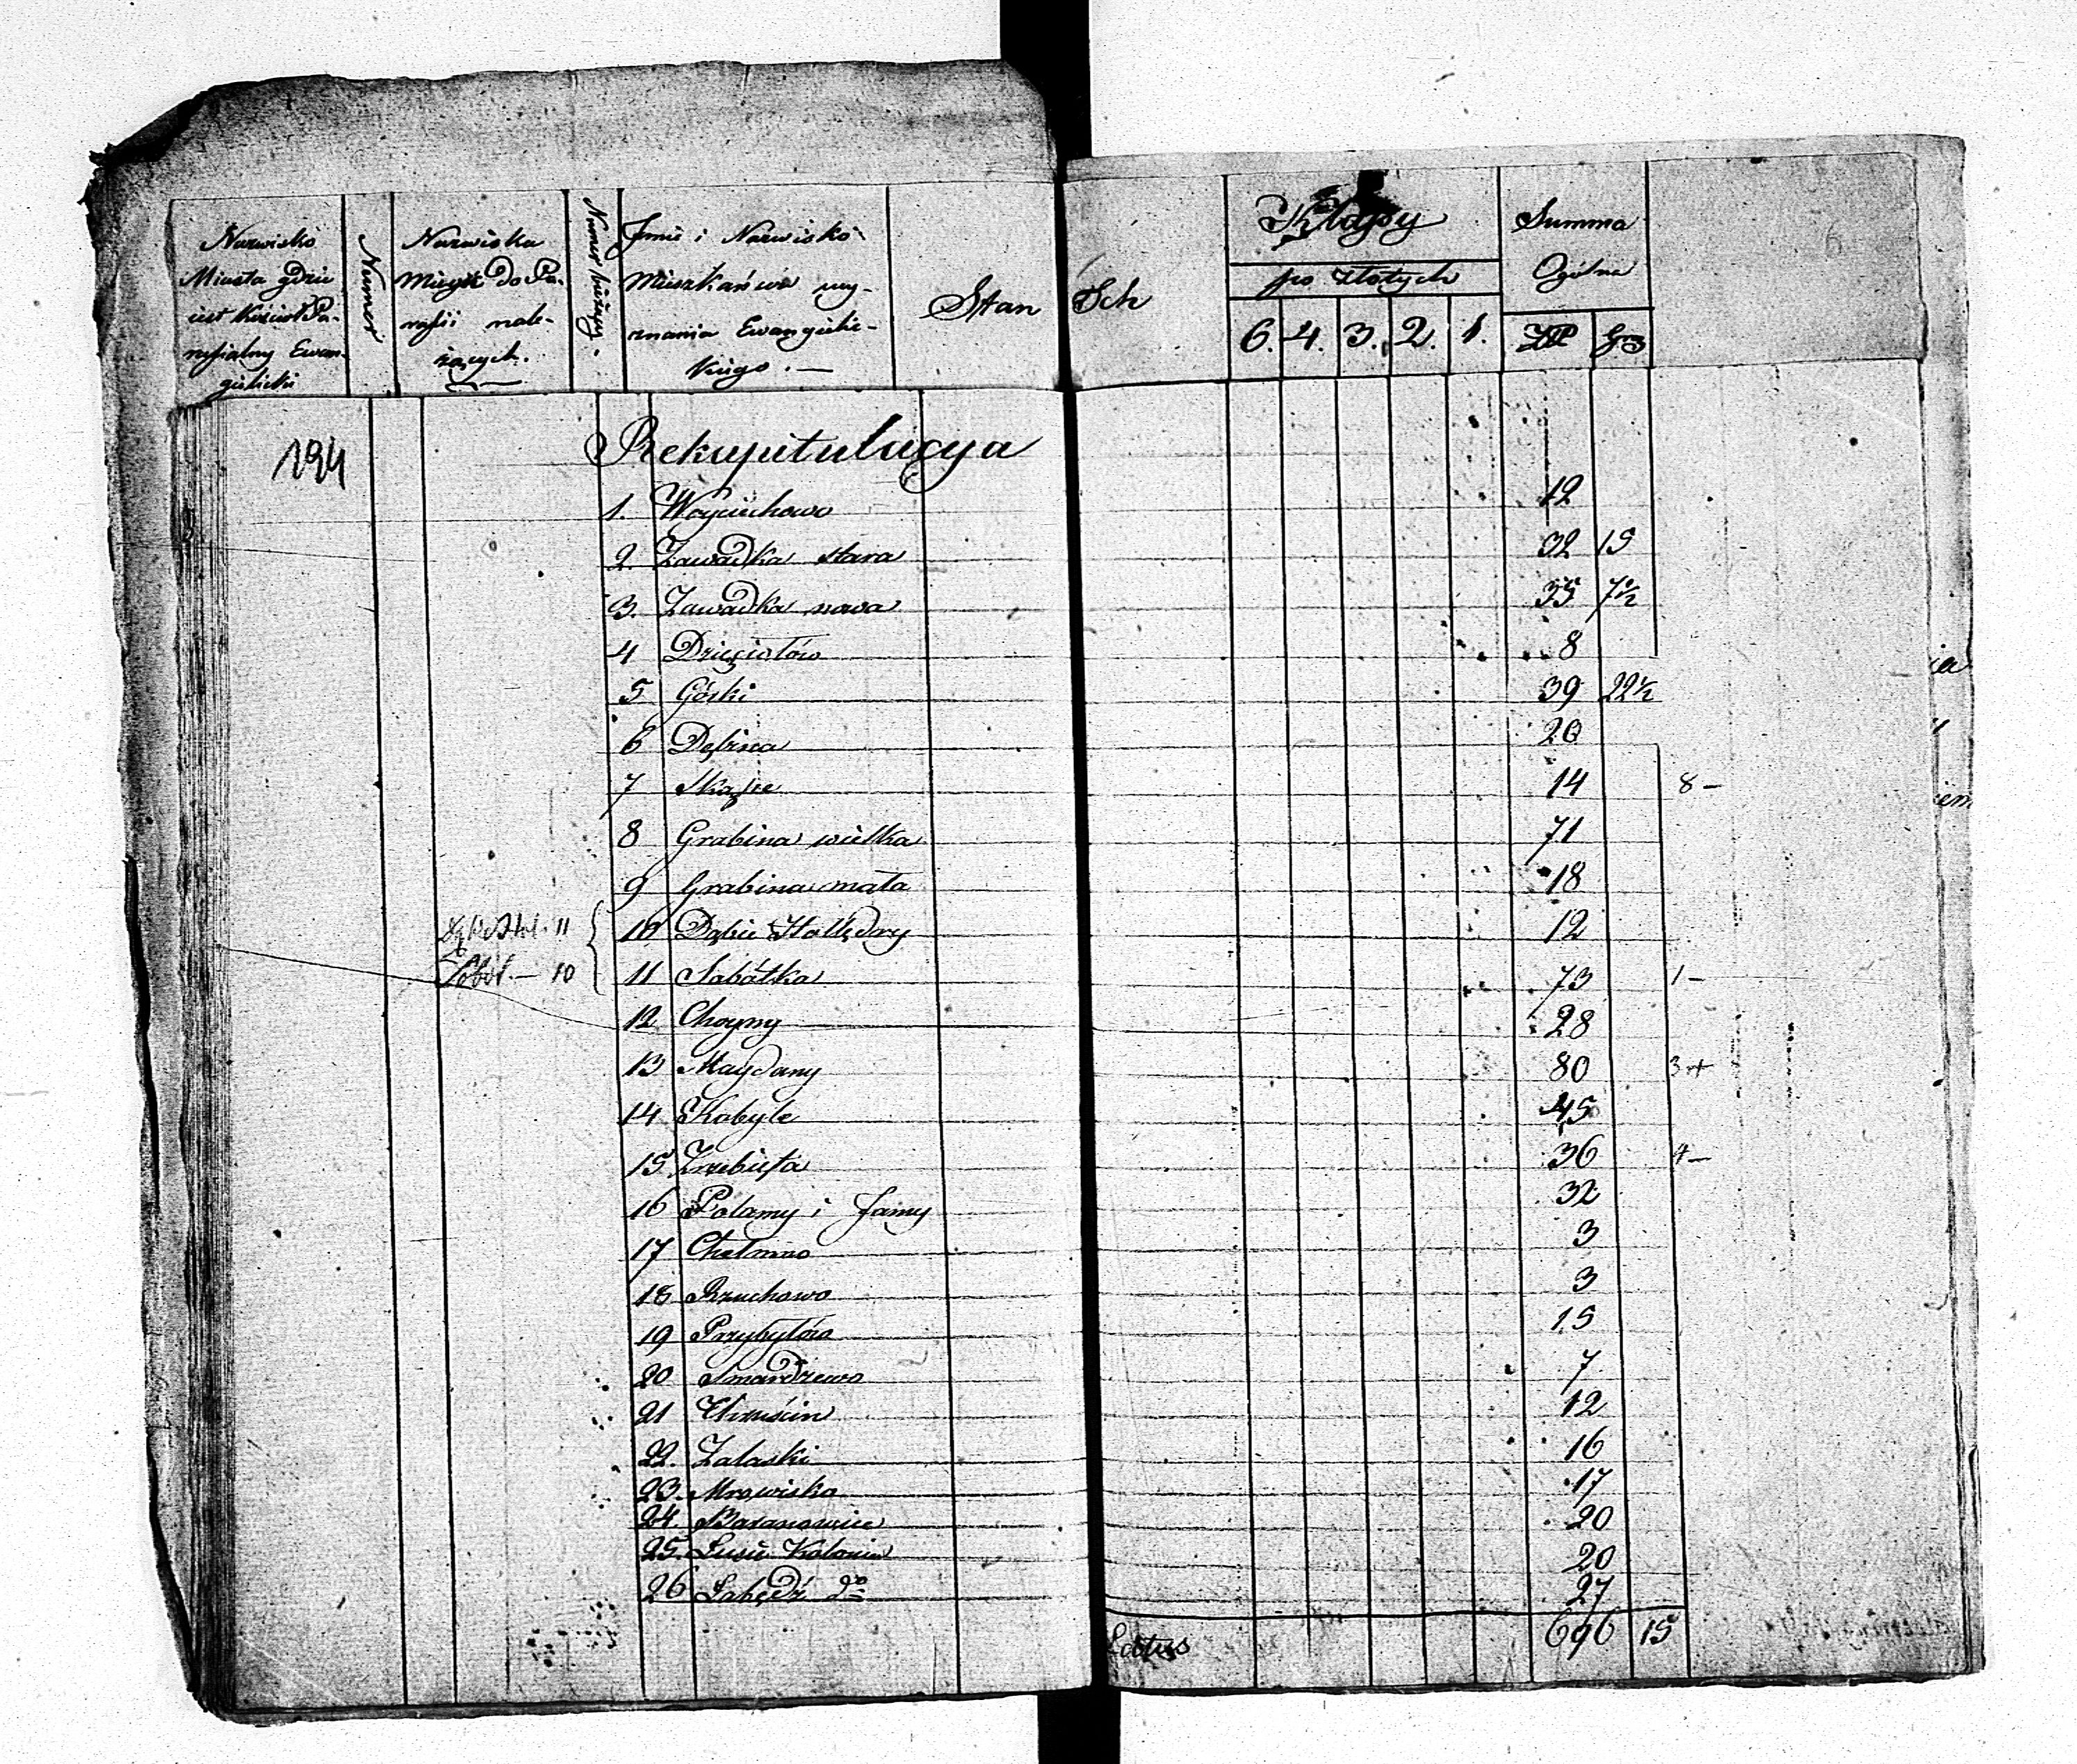 Nazwisko
Miasta gdzie
iest Kościoł Pa-
rafialny Ewan-
gielicki
Numer
Nazwiska
Mieysc do Pa-
rafii nale-
żących.
Numer bieżący.
Jmie i Nazwisko
Mieszkańców wy-
znania Ewangielic-
kiego. —
Stan Ich
Klassy
po złotych
6. 4. 3. 2. 1.
Summa
Ogólna
ZP Gr
194
Rekapitulacya
1. Woyciechowo 12
2 Zawadka stara 32 15
3. Zawadka nowa 35 7½
4 Dzięciołów 8
5 Górki 39 22½
6 Dębina 20
7 Skąpe 14 8 –
8 Grabina wielka 71
9 Grabina mała 18
11 10 Dąbie Hollędry 12
Sobót. — 10 11 Sobótka 73 1 –
12 Choyny 28
13 Maydany 80 3 +
14 Kobyle 45
15 Zrzebięta 36 4 –
16 Polamy i Jamy 32
17 Chełmno 3
18 Rzuchowo 3
19 Przybyłów 15
20 Smardzewo 7
21 12
22. Zalaski 16
23. Mrowiska 17
24. Baranowice 20
25. Kolonia 20
26 Łabędź do 27
Latus 696 15